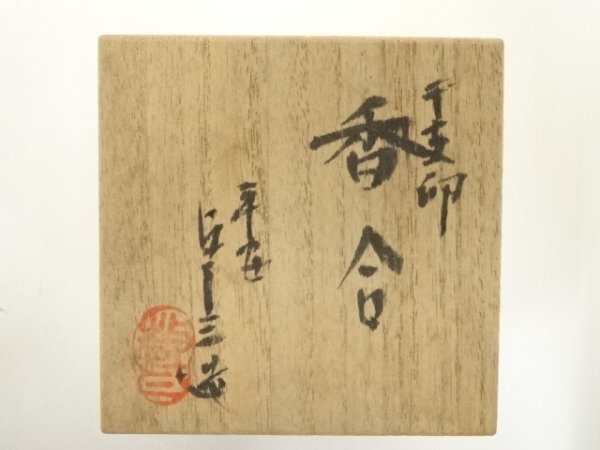 干支卯
香合
平安
三造